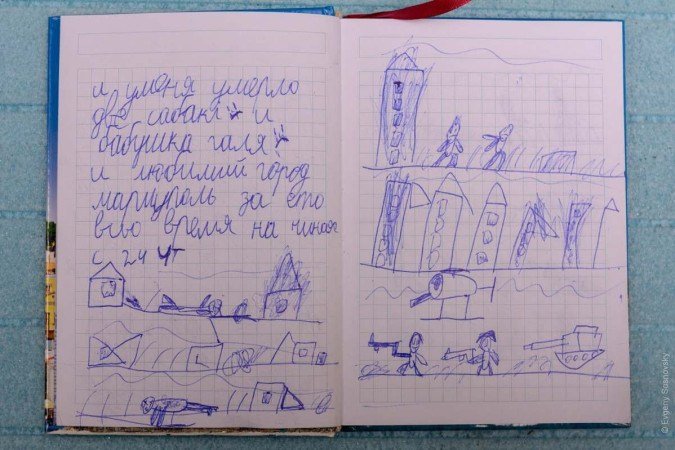 и уменя умерло
две сабаки и
бабушка галя
и любимий город
мариуполь за ето
всё время на чиная
с 24 чт
© Evgeny Sosnovsky